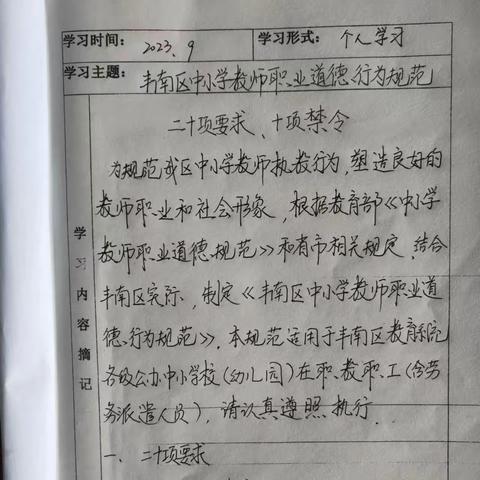 学习时间： 2023.9 学习形式： 个人学习
学习主题： 丰南区中小学教师职业道德行为规范
二十项要求、十项禁令
为规范我区中小学教师执教行为，塑造良好的
教师职业和社会形象，根据教育部《中小学
教师职业道德规范》和省市相关规定，结合
丰南区实际，制定《丰南区中小学教师职业道
德行为规范》。本规范适用于丰南区教育系统
各级公办中小学校（幼儿园）在职教职工（含劳
务派遣人员），请认真遵照执行.
一、二十项要求
学习内容摘记